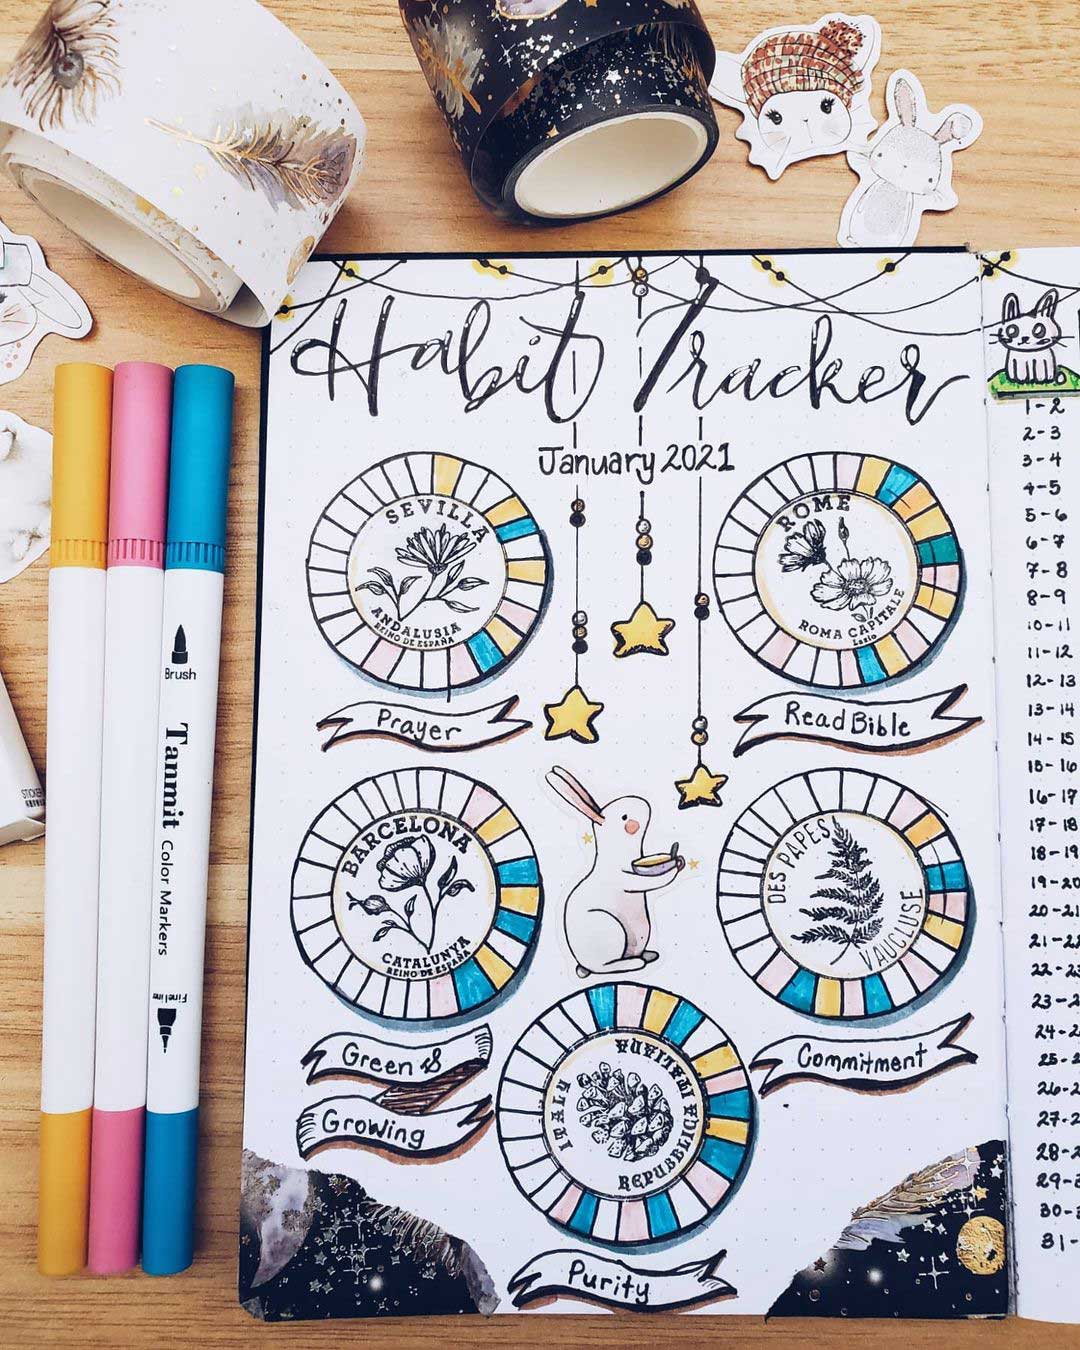 Habit Tracker
January 2021
SEVILLA
ANDALUSIA
REINO DE ESPAÑA
Prayer
ROME
ROMA CAPITALE
Lazio
Read Bible
BARCELONA
CATALUNYA
REINO DE ESPAÑA
Green &
Growing
DES PAPES
VAUCLUSE
Commitment
REPUBBLICA ITALIANA
Purity
Brush
Tanmit Color Markers
Fineliner
STICKER
1-2
2-3
3-4
4-5
5-6
6-7
7-8
8-9
10-11
11-12
12-13
13-14
14-15
15-16
16-17
17-18
18-19
19-20
20-21
21-22
22-23
23-2
24-2
25-2
26-2
27-2
28-
29-
30-
31-